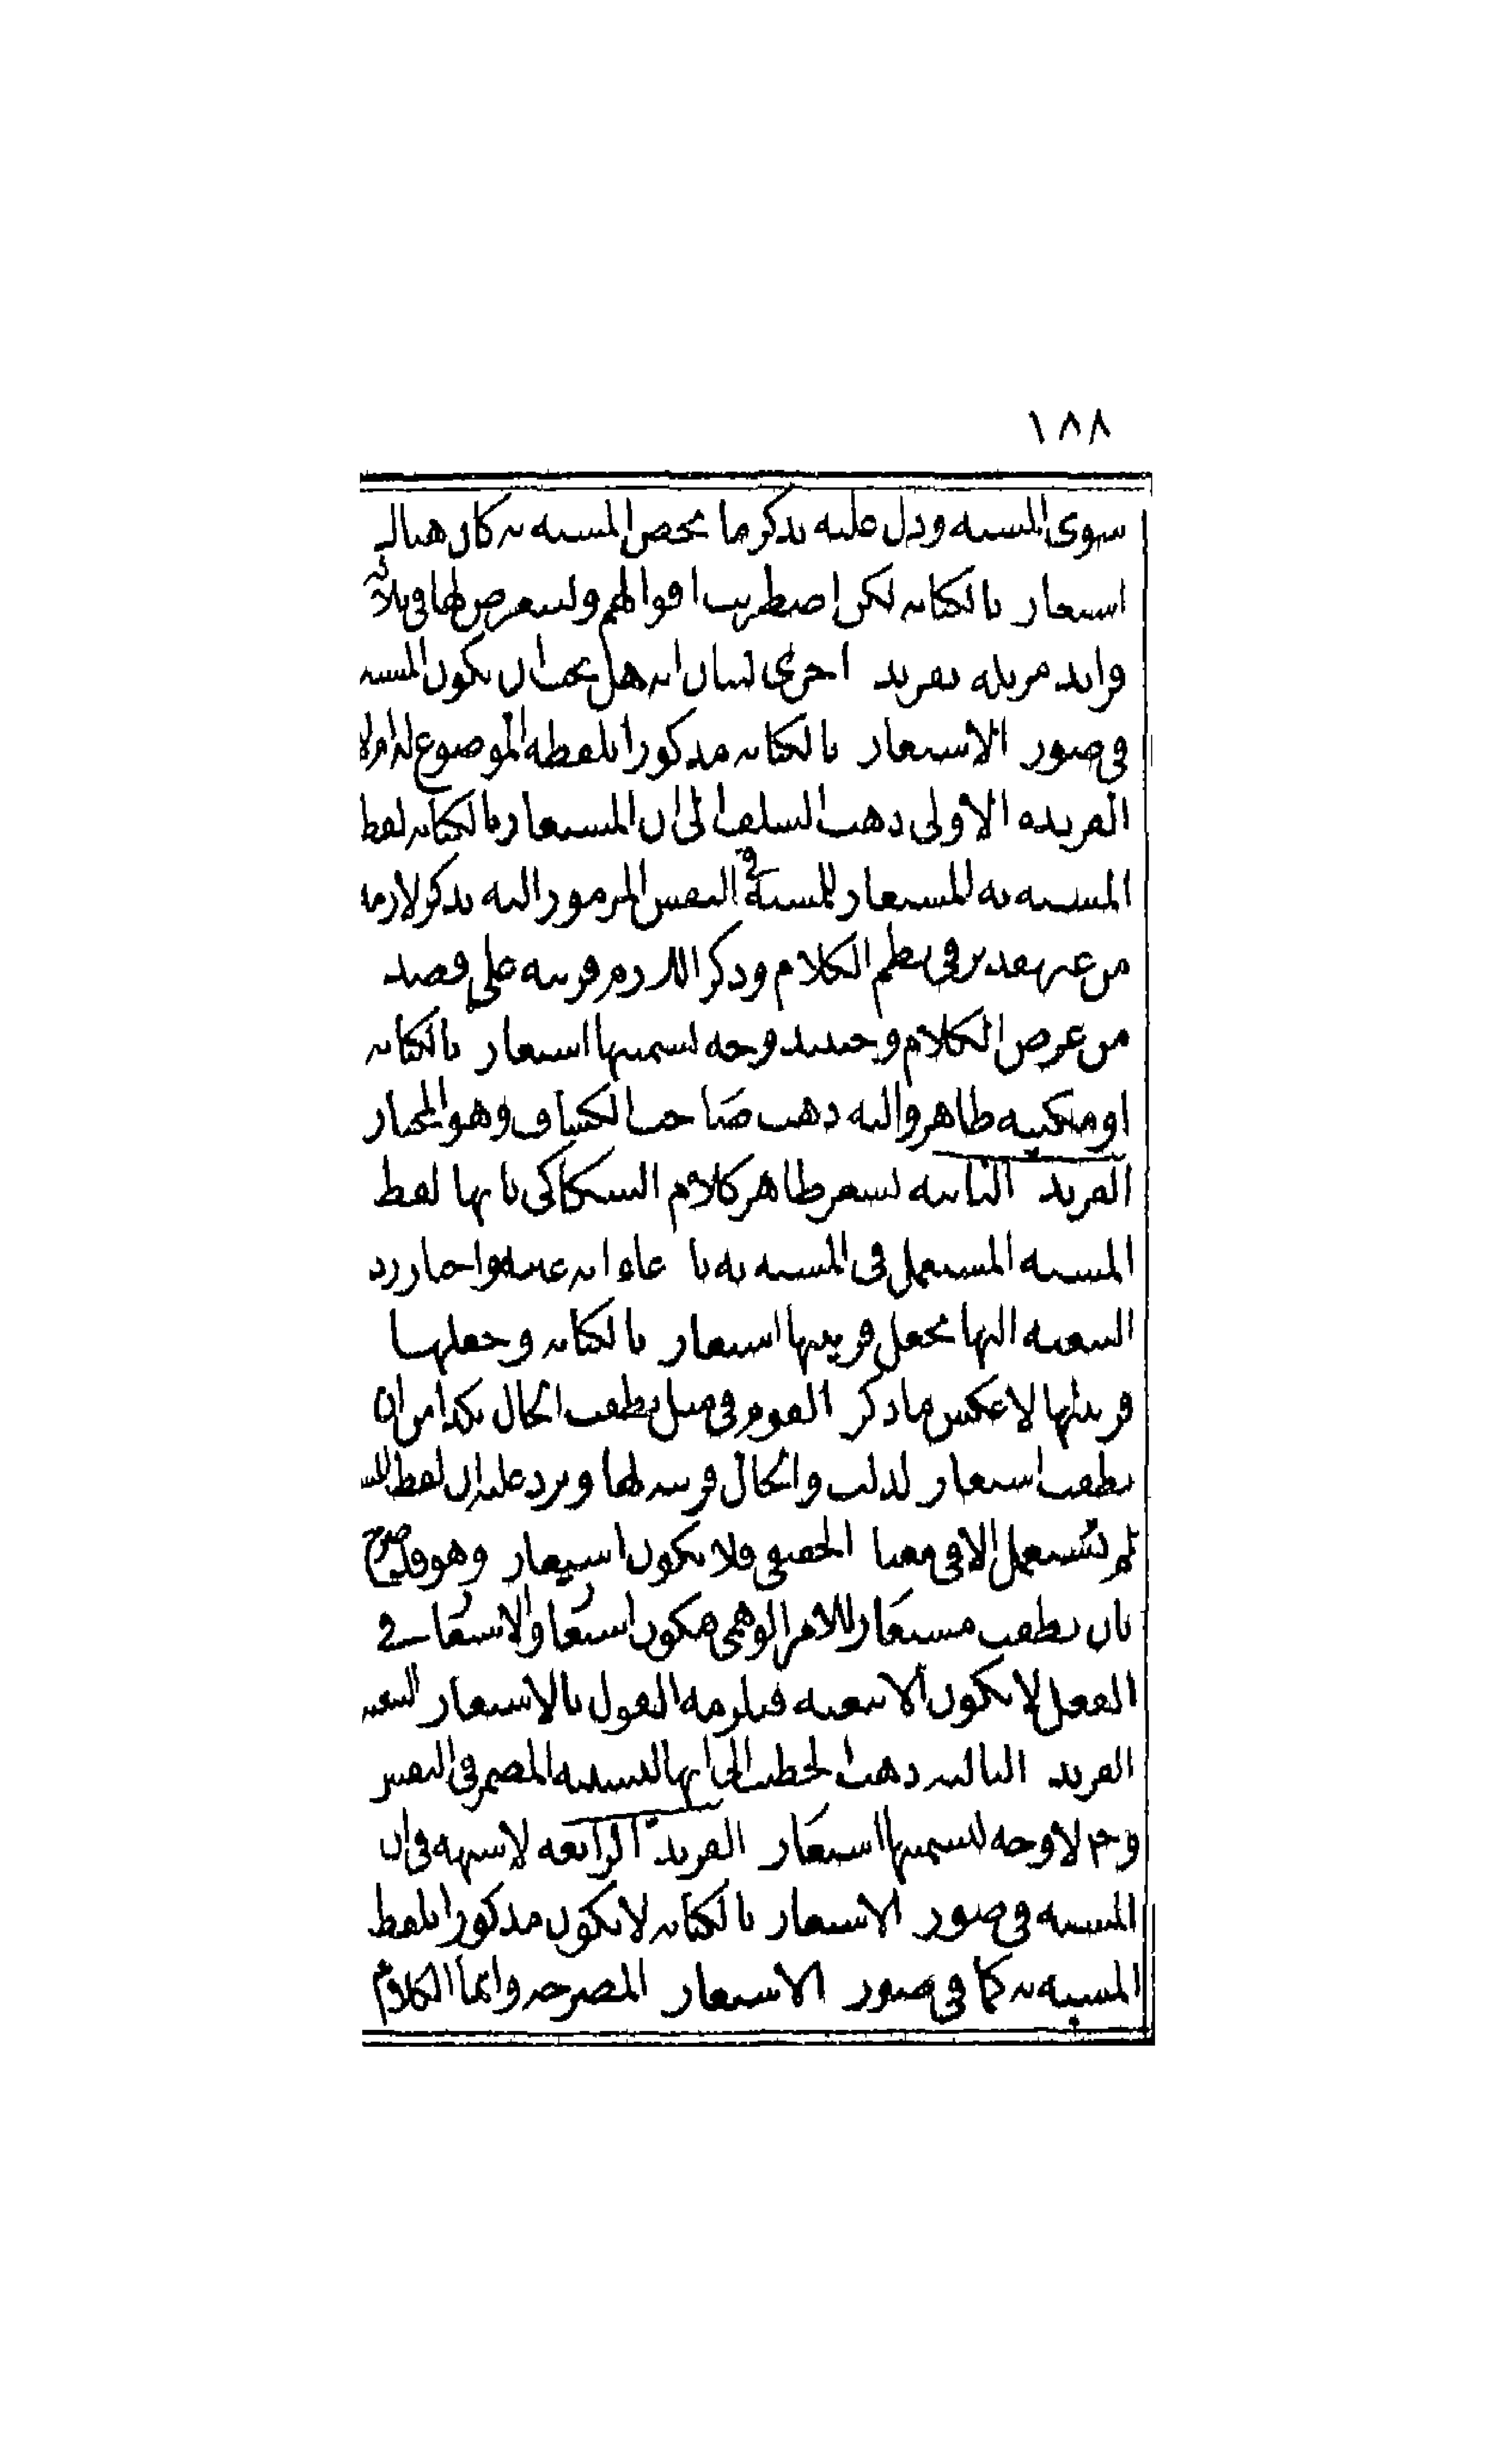 ١٨٨
سوى المشبه ودل عليه بذكر ما يخص المشبه به كان هناك
استعارة بالكناية لكن اضطربت اقوالهم ولنتعرض لها في ثلاثة
فرايد مزيلة بفريدة اخرى لبيان انه هل يجب ان يكون المشبه
في صورة الاستعارة بالكناية مذكورا بلفظه الموضوع له ام لا
الفريدة الاولى ذهب السلف الى ان المستعار بالكناية لفظ
المشبه به المستعار للمشبه في النفس المرموز اليه بذكر لازمه
من غير تقدير في نظم الكلام وذكر اللازم قرينة على قصده
من عرض الكلام وحينئذ وجه تسميتها استعارة بالكناية
او مكنية ظاهر واليه ذهب صاحب الكشاف وهو المختار
الفريدة الثانية يشعر ظاهر كلام السكاكي بانها لفظ
المشبه المستعمل في المشبه به بادعاء انه عينه واختار رد
التبعية اليها بجعل قرينتها استعارة بالكناية وجعلها
قرينتها لا عكس ما ذكره القوم في مثل نطقت الحال بكذا من ان
نطقت استعارة لدلت والحال قرينة لها ويرد عليه ان لفظ المشبه
لم يستعمل الا في معناه الحقيقي فلا يكون استعارة وهو قد صرح
بان نطقت مستعارة للامر الوهمي فيكون استعارة والاستعارة في
الفعل لا يكون الا تبعية فيلزمه القول بالاستعارة التبعية
الفريدة الثالثة ذهب الخطيب الى انها التشبيه المضمر في النفس
وح لا وجه لتسميتها استعارة الفريدة الرابعة لا شبهة في ان
المشبه في صورة الاستعارة بالكناية لا يكون مذكورا بلفظ
المشبه به كما في صورة الاستعارة المصرحة وانما الكلام